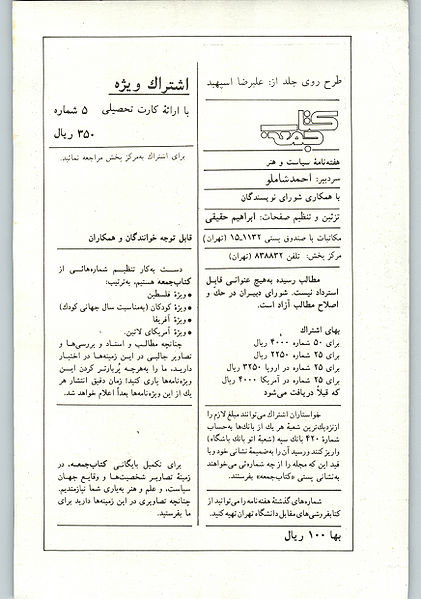 طرح روی جلد از: علیرضا اسپهبد
کتاب جمعه
هفته‌نامهٔ سیاست و هنر
سردبیر: احمد شاملو
با همکاری شورای نویسندگان
تزئین و تنظیم صفحات: ابراهیم حقیقی
مکاتبات با صندوق پستی ۱۱۳۲-۱۵ (تهران)
مرکز پخش: تلفن ۸۳۸۸۳۲ (تهران)
مطالب رسیده به‌هیچ عنوانی قابل
استرداد نیست. شورای دبیران در حک و
اصلاح مطالب آزاد است.
بهای اشتراك
برای ۵۰ شماره ۴۰۰۰ ریال
برای ۲۵ شماره ۲۲۵۰ ریال
برای ۲۵ شماره در اروپا ۳۲۵۰ ریال
برای ۲۵ شماره در آمریکا ۴۰۰۰ ریال
که قبلاً دریافت می‌شود
خواستاران اشتراك می‌توانند مبلغ لازم را
از نزدیك‌ترین شعبهٔ هر یك از بانك‌ها به‌حساب
شمارهٔ ۴۲۰ بانك سپه (شعبهٔ اتو بانك باشگاه)
واریز کنند و رسید آن را به‌ضمیمهٔ نشانی خود و با
قید این که مجله را از چه شماره‌ئی می‌خواهند
به‌نشانی پستی «کتاب‌جمعه» بفرستند.
شماره‌های گذشتهٔ هفته‌نامه را می‌توانید از
کتابفروشی‌های مقابل دانشگاه تهران تهیه کنید.
بها ۱۰۰ ریال
اشتراك ویژه
با ارائهٔ کارت تحصیلی ۵ شماره
۳۵۰ ریال
برای اشتراك به‌مرکز پخش مراجعه نمائید.
قابل توجه خوانندگان و همکاران
دست به‌کار تنظیم شماره‌هائی از
کتاب‌جمعه هستیم، به‌ترتیب:
• ویژهٔ فلسطین
• ویژهٔ کودکان (به‌مناسبت سال جهانی کودك)
• ویژهٔ آفریقا
• ویژهٔ آمریکای لاتین.
چنانچه مطالب و اسناد و بررسی‌ها و
تصاویر جالبی در این زمینه‌ها در اختیار
دارید، ما را به‌هرچه پُربارتر کردن این
ویژه‌نامه‌ها یاری کنید؛ زمان دقیق انتشار هر
یك از این ویژه‌نامه‌ها بعداً اعلام خواهد شد.
برای تکمیل بایگانی کتاب‌جمعه، در
زمینهٔ تصاویر شخصیت‌ها و وقایع جهان
سیاست، و علم و هنر به‌یاری شما نیازمندیم.
چنانچه تصاویری در این زمینه‌ها دارید برای
ما بفرستید.